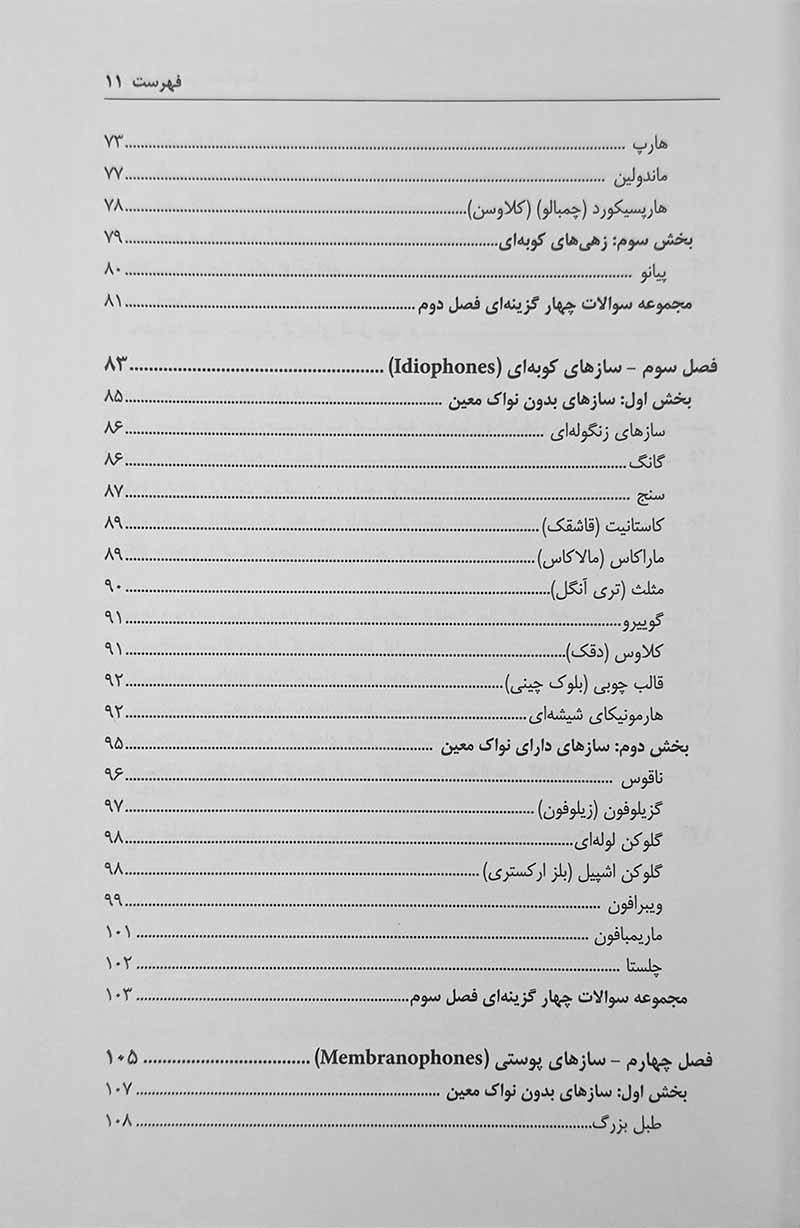 فهرست ۱۱
هارپ ........ ۷۳
ماندولین ........ ۷۷
هارپسیکورد (چمبالو) (کلاوسن) ........ ۷۸
بخش سوم: زهی‌های کوبه‌ای ........ ۷۹
پیانو ........ ۸۰
مجموعه سوالات چهار گزینه‌ای فصل دوم ........ ۸۱
فصل سوم – سازهای کوبه‌ای (Idiophones) ........ ۸۳
بخش اول: سازهای بدون نواک معین ........ ۸۵
سازهای زنگوله‌ای ........ ۸۶
گانگ ........ ۸۶
سنج ........ ۸۷
کاستانیت (قاشقک) ........ ۸۹
ماراکاس (مالاکاس) ........ ۸۹
مثلث (تری آنگل) ........ ۹۰
گوییرو ........ ۹۱
کلاوس (دقک) ........ ۹۱
قالب چوبی (بلوک چینی) ........ ۹۲
هارمونیکای شیشه‌ای ........ ۹۲
بخش دوم: سازهای دارای نواک معین ........ ۹۵
ناقوس ........ ۹۶
گزیلوفون (زیلوفون) ........ ۹۷
گلوکن لوله‌ای ........ ۹۸
گلوکن اشپیل (بلز ارکستری) ........ ۹۸
ویبرافون ........ ۹۹
ماریمبافون ........ ۱۰۱
چلستا ........ ۱۰۲
مجموعه سوالات چهار گزینه‌ای فصل سوم ........ ۱۰۳
فصل چهارم – سازهای پوستی (Membranophones) ........ ۱۰۵
بخش اول: سازهای بدون نواک معین ........ ۱۰۷
طبل بزرگ ........ ۱۰۸